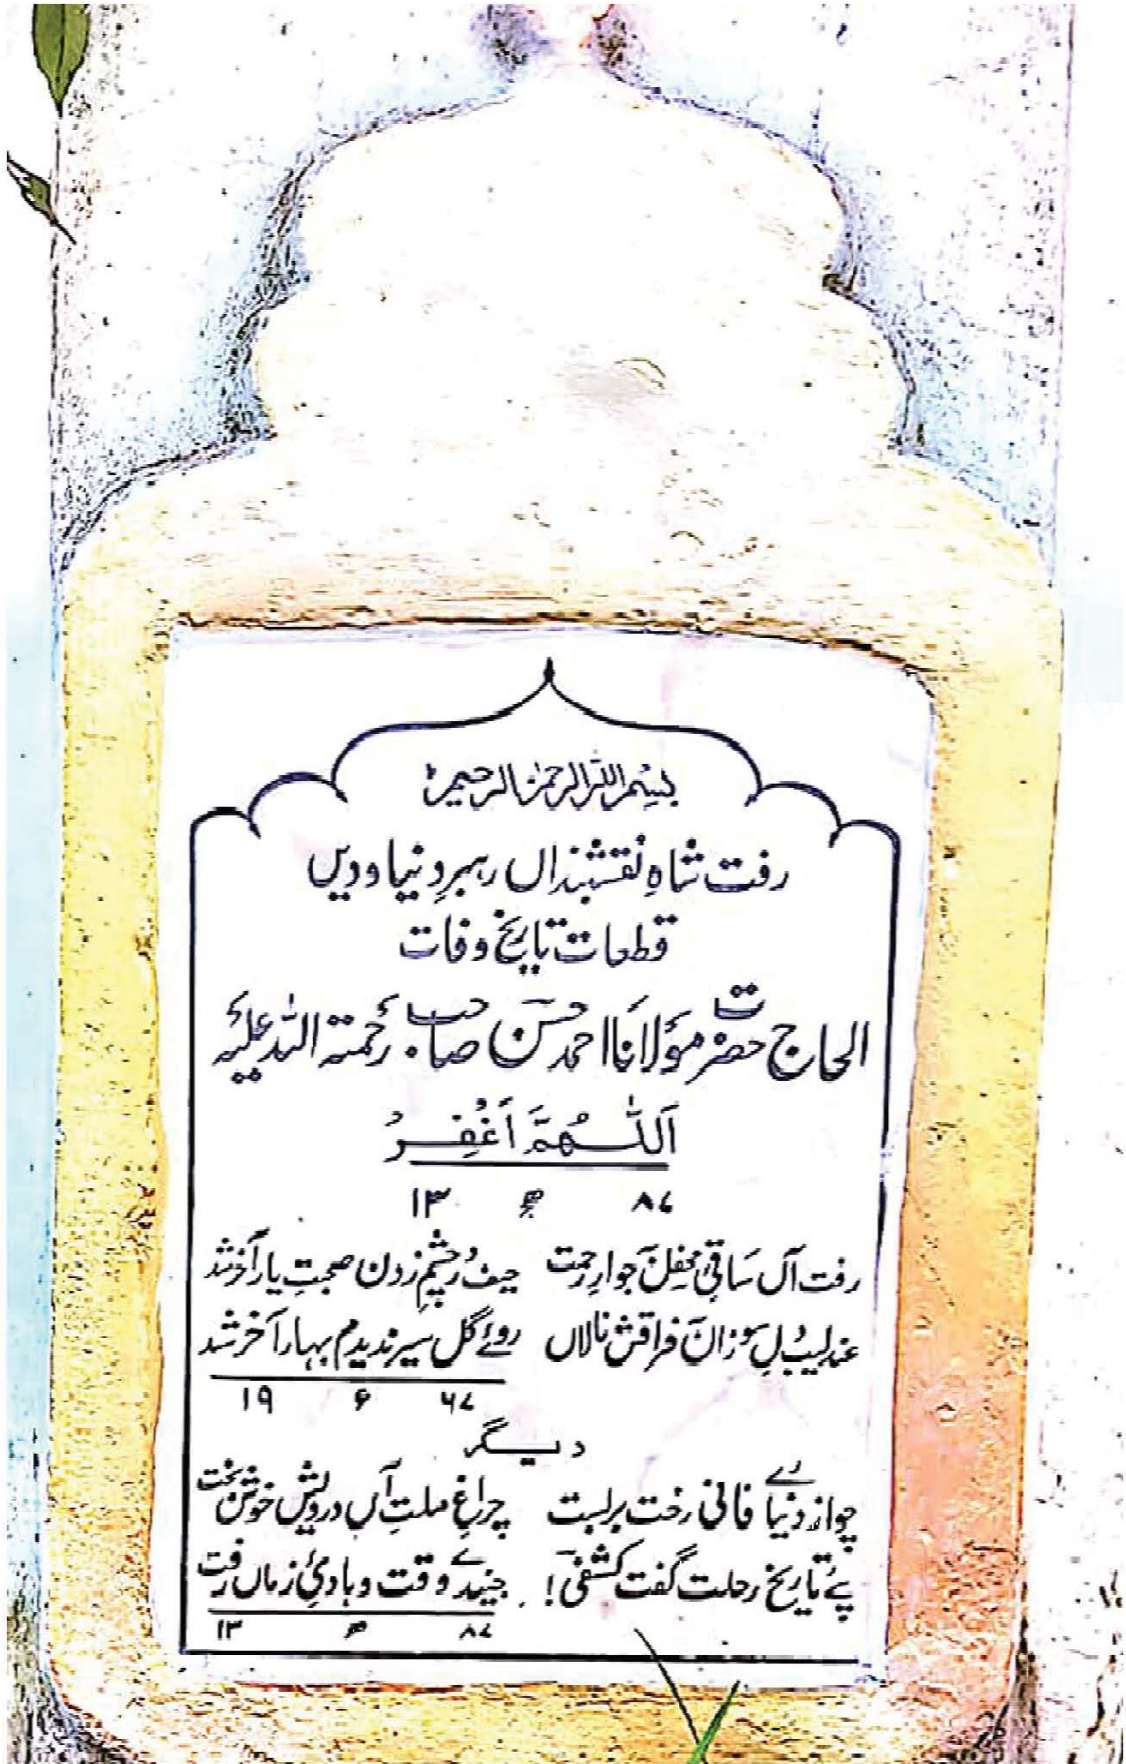 بسم اللہ الرحمٰن الرحیم
رفت شاہِ نقشبنداں رہبرِ دنیا و دیں
قطعات تاریخ وفات
الحاج حضرت مولانا احمد حسن صاحب رحمتہ اللہ علیہ
اَللّٰھُمَّ اَغْفِرُ
۱۳ ھ ۸۷
رفت آں ساقیٔ محفل جوارِ رحمت حیف در چشمِ زدن صحبتِ یار آخر شد
عندلیبِ دلِ سوزاں فراقش نالاں روئے گل سیر ندیدم بہار آخر شد
۱۹ ۶ ۶۷
دیگر
چواز دنیائے فانی رخت بر بست چراغِ ملت آں درویش خوش بخت
پۓ تاریخ رحلت گفت کشفی! جنیدے وقت و ہادیٔ زماں رفت
۱۳ ھ ۸۷